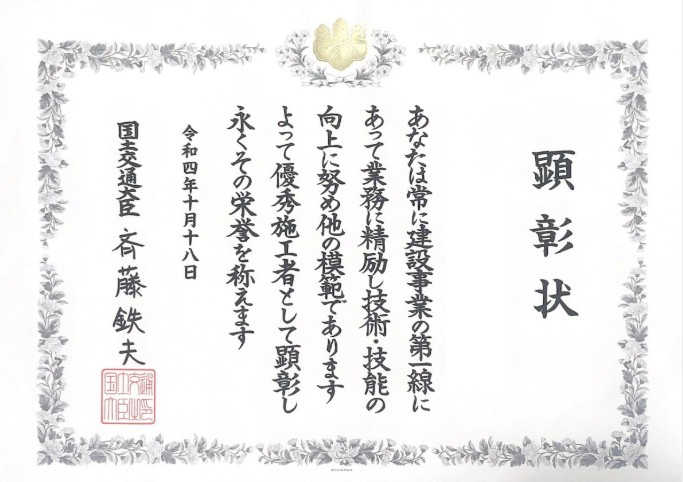 顕彰状
あなたは常に建設事業の第一線に
あって業務に精励し技術・技能の
向上に努め他の模範であります
よって優秀施工者として顕彰し
永くその栄誉を称えます
令和四年十月十八日
国土交通大臣 斉藤鉄夫